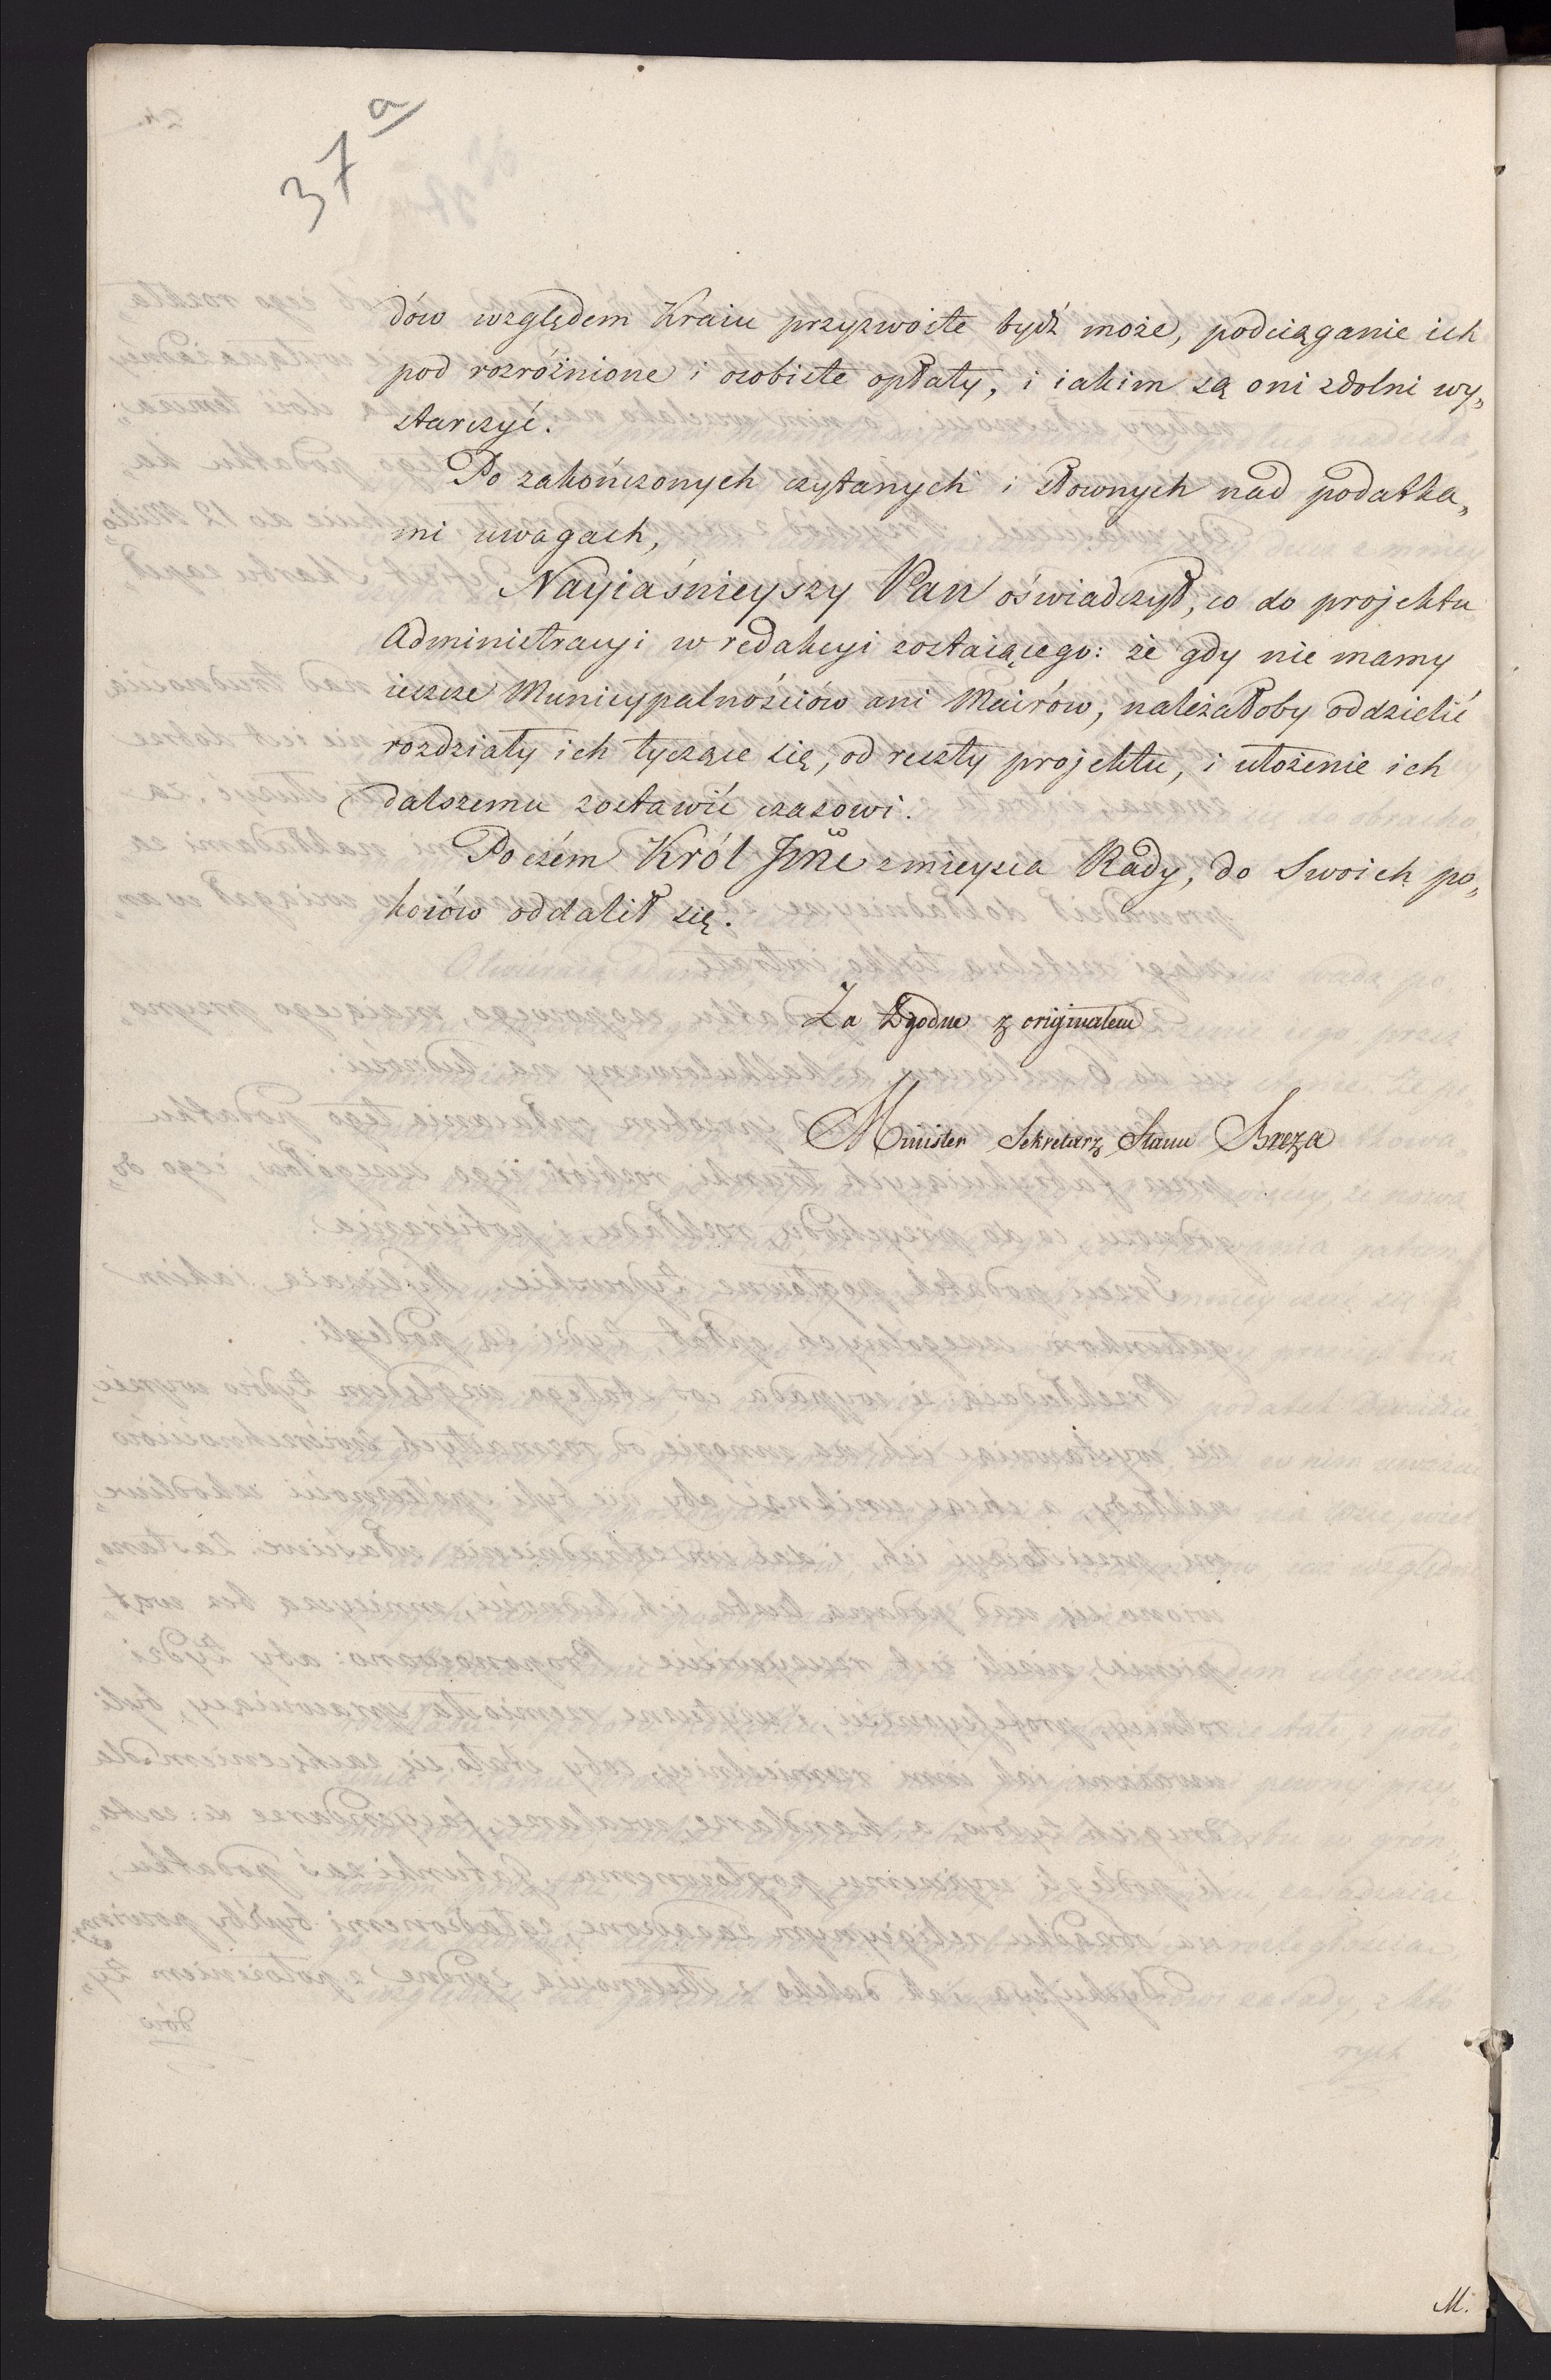 37a
dów względem Kraiu przyzwoite bydź może, podciąganie ich
pod rozróżnione i osobiste opłaty, i iakim są oni zdolni wy„
starczyć.
Po zakończonych czytanych i słownych nad podatka„
mi uwagach,
Nayiaśnieyszy Pan oświadczył, co do projektu
Administracyi w redakcyi zostaiącego: że gdy nie mamy
ieszcze Municypalnościów ani Mairów, należałoby oddzielić
rozdziały ich tyczące się, od reszty projektu, i ułożenie ich
dalszemu zostawić czasowi.
Poczém Król Jmć z mieysca Rady, do Swoich po„
koiów oddalił się.
Za Zgodne z originałem
Minister Sekretarz Stanu Breza
M.